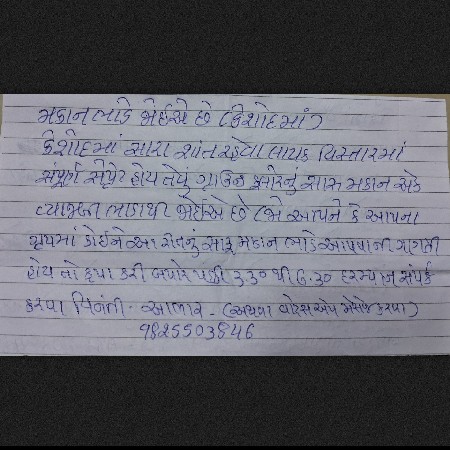 મકાન ભાડે જોઈએ છે (કેશોદમાં)
કેશોદમાં સારા શાંત રહેવા લાયક વિસ્તારમાં
સંપૂર્ણ સેપ્રેટ હોય તેવું ગ્રાઉન્ડ ફ્લોરનું સારૂ મકાન એક
વ્યક્તિને ભાડાથી જોઈએ છે જો આપને કે આપના
ગ્રુપમાં કોઈને આ રીતનું સારૂ મકાન ભાડે આપવાની ગણતરી
હોય તો કૃપા કરી બપોર પછી 3.30 થી 6.30 દરમ્યાન સંપર્ક
કરવા વિનંતી. આભાર - (અથવા વોટ્સએપ મેસેજ કરવા)
9825503846